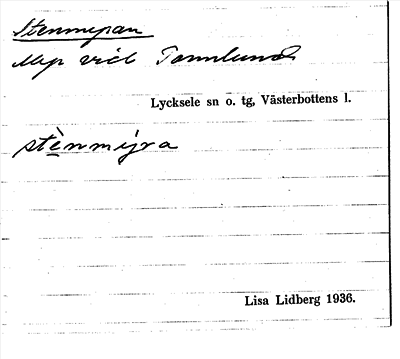 Stenmyran
Myr vid Tannlund
Lycksele sn o. tg, Västerbottens l.
stènmýra
Lisa Lidberg 1936.